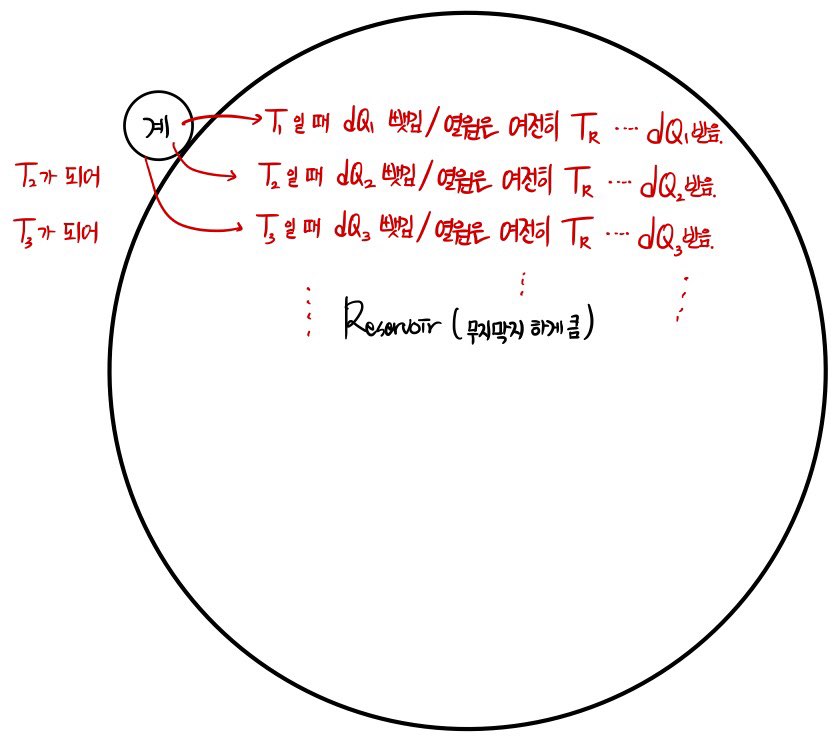 계 T₁일 때 dQ₁ 뺏김/열원은 여전히 T_R ···· dQ₁ 받음.
T₂가 되어 T₂일 때 dQ₂ 뺏김/열원은 여전히 T_R ···· dQ₂ 받음.
T₃가 되어 T₃일 때 dQ₃ 뺏김/열원은 여전히 T_R ···· dQ₃ 받음.
Reservoir (무지막지하게 큼)